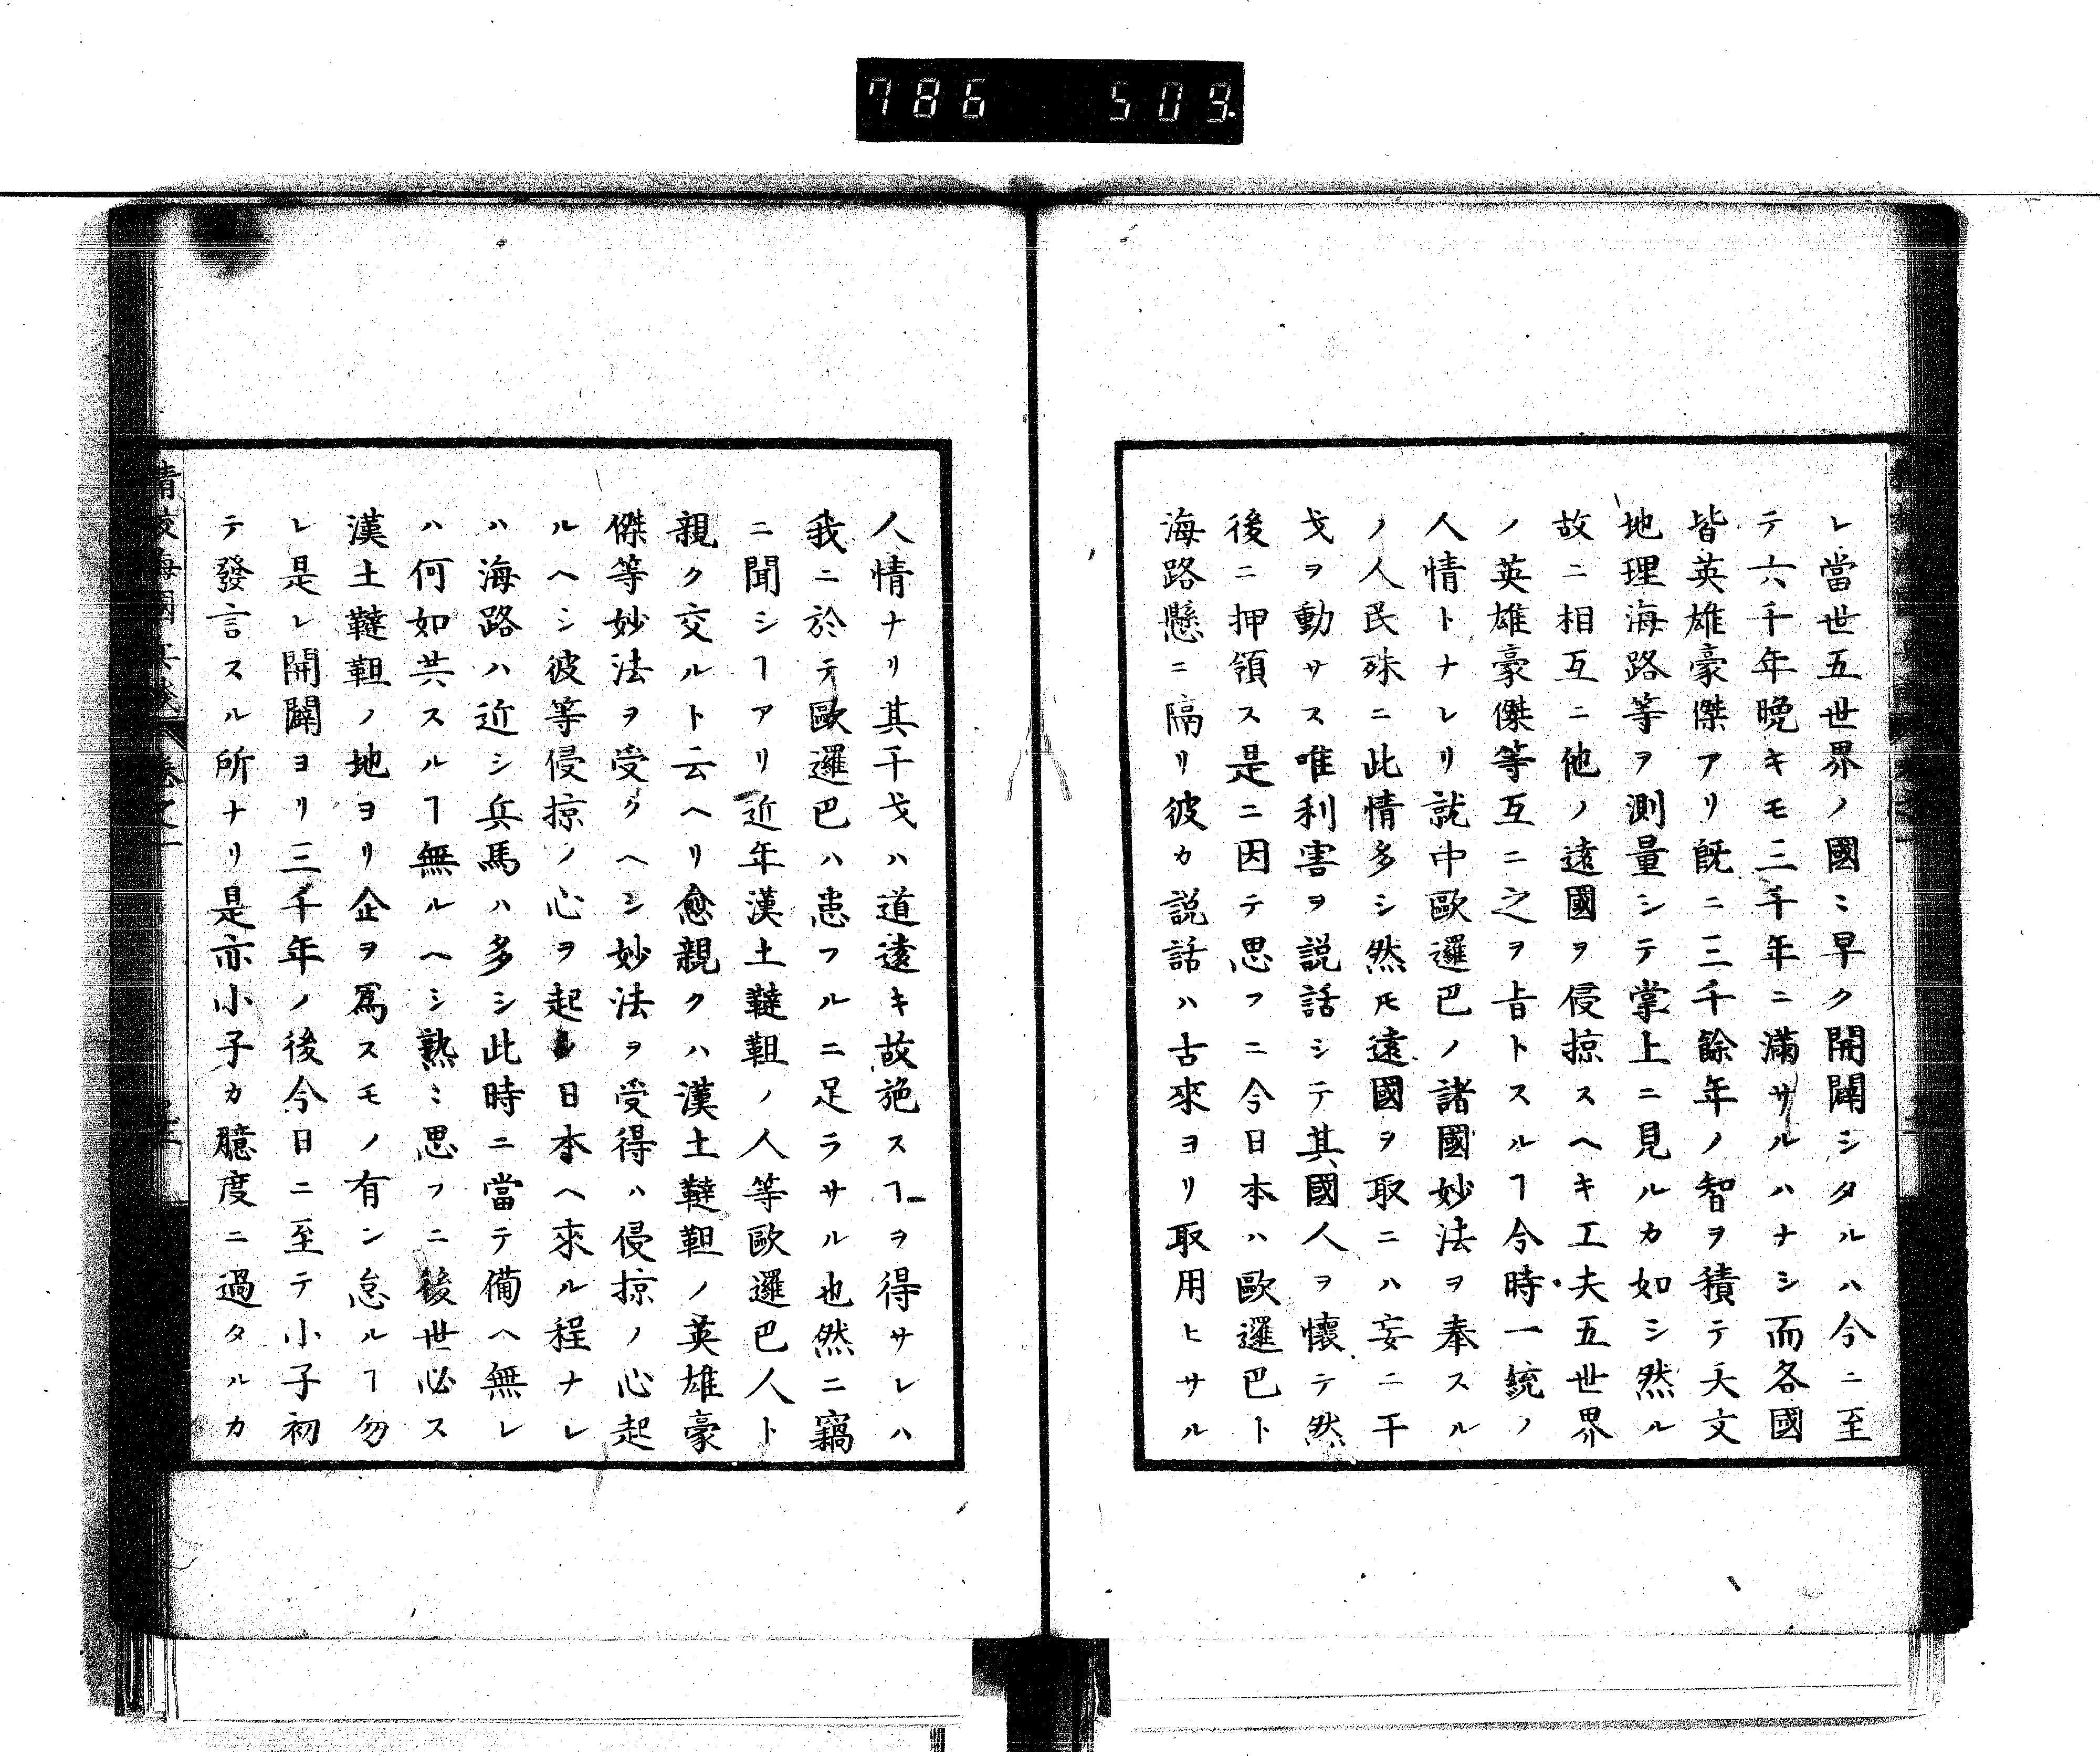 786 509
レ當世五世界ノ國〻早ク開闢シタルハ今ニ至
テ六千年晩キモ三千年ニ滿サルハナシ而各國
皆英雄豪傑アリ既ニ三千餘年ノ智ヲ積テ天文
地理海路等ヲ測量シテ掌上ニ見ルカ如シ然ル
故ニ相互ニ他ノ遠國ヲ侵掠スヘキ工夫五世界
ノ英雄豪傑等互ニ之ヲ旨トスルヿ今時一統ノ
人情トナレリ就中歐邏巴ノ諸國妙法ヲ奉スル
ノ人民殊ニ此情多シ然𪜈遠國ヲ取ニハ妄ニ干
戈ヲ動サス唯利害ヲ説話シテ其國人ヲ懷テ然
後ニ押領ス是ニ因テ思フニ今日本ハ歐邏巴ト
海路懸ニ隔リ彼カ説話ハ古來ヨリ取用ヒサル
人情ナリ其干戈ハ道遠キ故施スヿヲ得サレハ
我ニ於テ歐邏巴ハ患フルニ足ラサル也然ニ竊
ニ聞シヿアリ近年漢土韃靼ノ人等歐邏巴人ト
親ク交ルト云ヘリ愈親クハ漢土韃靼ノ英雄豪
傑等妙法ヲ受クヘシ妙法ヲ受得ハ侵掠ノ心起
ルヘシ彼等侵掠ノ心ヲ起レ日本ヘ來ル程ナレ
ハ海路ハ近シ兵馬ハ多シ此時ニ當テ備ヘ無レ
ハ何如共スルヿ無ルヘシ熟〻思フニ後世必ス
漢土韃靼ノ地ヨリ企ヲ爲スモノ有ン怠ルヿ勿
レ是レ開闢ヨリ三千年ノ後今日ニ至テ小子初
テ發言スル所ナリ是亦小子カ臆度ニ過タルカ